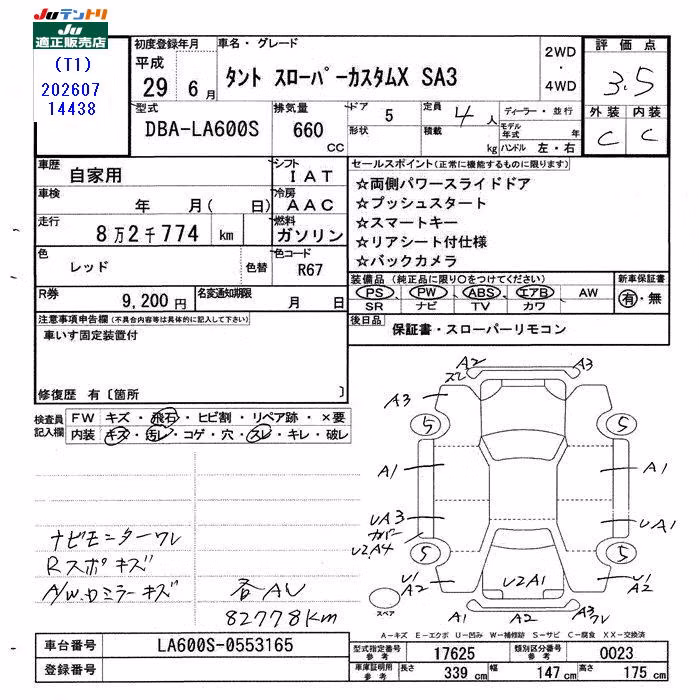 Juテントリ
Ju
適正販売店
(T1)
202607
14438
初度登録年月
平成
29 6 月
車名・グレード
タント スローパーカスタムX SA3
2WD
・
4WD
評価点
3.5
外装 内装
C C
型式
DBA-LA600S
排気量
660
CC
ドア
5
形状
定員
4 人
積載
kg
ディーラー・並行
モデル年式 年
ハンドル 左・右
車歴
自家用
シフト
IAT
車検
年 月( 日)
冷房
AAC
走行
8万2千774 km
燃料
ガソリン
色
レッド
色替
色コード
R67
R券
9,200円
名変通知期限
月 日
セールスポイント(正常に機能するものに限ります)
☆両側パワースライドドア
☆プッシュスタート
☆スマートキー
☆リアシート付仕様
☆バックカメラ
装備品 (純正品に限り○をつけてください)
PS PW ABS エアB AW
SR ナビ TV カワ
新車保証書
有・無
後日品
保証書・スローパーリモコン
注意事項申告欄(不具合内容等は具体的に記入して下さい)
車いす固定装置付
修復歴 有〔箇所 〕
検査員記入欄
FW キズ・飛石・ヒビ割・リペア跡・×要
内装 キズ・汚レ・コゲ・穴・スレ・キレ・破レ
ナビモニターワレ
Rスポキズ
A/W.ロミラーキズ
各AU
82778km
A2
A3
ズレ
A3
5
5
A1
A1
UA3
カバー
U2A4
UA1
5
5
U1
A2
U1
A2
U2A1
スペア
A1
A2
A3
ワレ
A-キズ E-エクボ U-凹み W-補修跡 S-サビ C-腐食 XX-交換済
車台番号
LA600S-0553165
登録番号
型式指定番号
参考
17625
類別区分番号
参考
0023
車庫証明用
参考
長さ
339 cm
幅
147 cm
高さ
175 cm